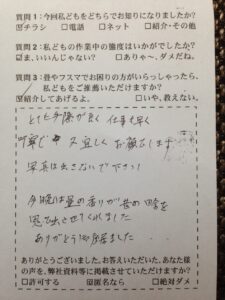 質問1：今回私どもをどちらでお知りになりましたか?
☑チラシ □電話 □ネット □紹介・その他
質問2：私どもの作業中の態度はいかがでしたか?
☑ま、いいんじゃない? □ありゃ～、ダメだね。
質問3：畳やフスマでお困りの方がいらっしゃったら、
私どもを ご推薦いただけますか?
☑紹介してあげるよ。 □いや、教えない。
とても手際が良く 仕事も早く
丁寧で 又宜しくお願いします
写真は出さないで下さい
今晩は畳の香りが昔の田舎を
思い出させてくれました
ありがとう御座居ました
ありがとうございました。お答えいただいた、あなた様
の声を、弊社資料等に掲載させていただけますか?
□許可する ☑匿名なら □絶対ダメ